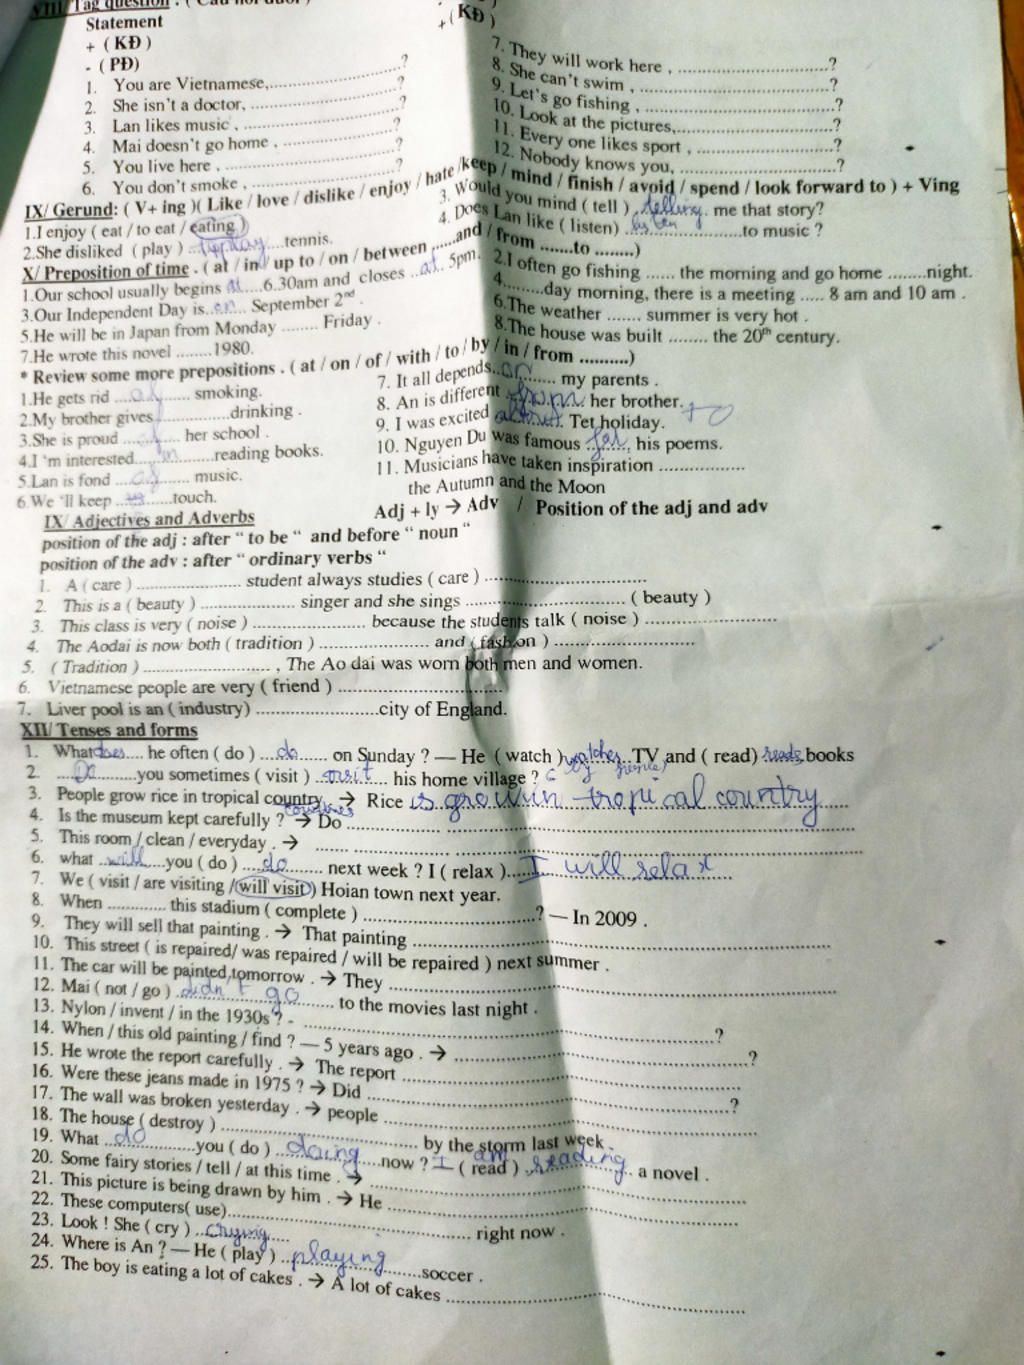 VIII/ Tag question . ( Câu hỏi đuôi )
Statement
+ ( KĐ )
- ( PĐ)
+ ( KĐ )
1. You are Vietnamese,..............................?
2. She isn't a doctor, ..............................?
3. Lan likes music , ..............................?
4. Mai doesn't go home , ..............................?
5. You live here , ..............................?
6. You don't smoke , ..............................?
7. They will work here , ..............................?
8. She can't swim , ..............................?
9. Let's go fishing , ..............................?
10. Look at the pictures,..............................?
11. Every one likes sport , ..............................?
12. Nobody knows you, ..............................?
IX/ Gerund: ( V+ ing )( Like / love / dislike / enjoy / hate /keep / mind / finish / avoid / spend / look forward to ) + Ving
1.I enjoy ( eat / to eat / eating )
2.She disliked ( play ) ..............tennis.
3. Would you mind ( tell ) .telling. me that story?
4. Does Lan like ( listen) .listen..............to music ?
X/ Preposition of time . ( at / in / up to / on / between ......and / from .......to ........)
1.Our school usually begins at.....6.30am and closes ..at. 5pm.
2.I often go fishing ...... the morning and go home ........night.
3.Our Independent Day is..on.... September 2nd .
4.........day morning, there is a meeting ..... 8 am and 10 am .
5.He will be in Japan from Monday ........ Friday .
6.The weather ....... summer is very hot .
7.He wrote this novel ........1980.
8.The house was built ........ the 20th century.
* Review some more prepositions . ( at / on / of / with / to / by / in / from ..........)
1.He gets rid ............. smoking.
2.My brother gives ..............drinking .
3.She is proud ............ her school .
4.I 'm interested....in........reading books.
5.Lan is fond ............ music.
6.We 'll keep ............touch.
7. It all depends..on......... my parents .
8. An is different .from. her brother.
9. I was excited about. Tet holiday. to
10. Nguyen Du was famous .for. his poems.
11. Musicians have taken inspiration ................
the Autumn and the Moon
IX/ Adjectives and Adverbs Adj + ly → Adv / Position of the adj and adv
position of the adj : after " to be " and before " noun "
position of the adv : after " ordinary verbs "
1. A ( care ) ...................... student always studies ( care ) ..................................
2. This is a ( beauty ) .................... singer and she sings .................................. ( beauty )
3. This class is very ( noise ) ........................ because the students talk ( noise ) ............................
4. The Aodai is now both ( tradition ) ........................ and ( fashion ) ..............................
5. ( Tradition ) ............................ , The Ao dai was worn both men and women.
6. Vietnamese people are very ( friend ) ...................................
7. Liver pool is an ( industry) ..........................city of England.
XII/ Tenses and forms
1. What does... he often ( do ) ...do...... on Sunday ? — He ( watch ) watches..TV and ( read) reads books
2. ....Do.........you sometimes ( visit ) ..visit.... his home village ?
3. People grow rice in tropical country. → Rice is grow in tropical country
countries
4. Is the museum kept carefully ? → Do ................. ..................................................................
5. This room / clean / everyday . → ....... .................... ..................................................................
6. what ..will....you ( do ) ....do....... next week ? I ( relax )....I will relax
7. We ( visit / are visiting / will visit ) Hoian town next year.
8. When ............ this stadium ( complete ) ....................................? — In 2009 .
9. They will sell that painting . → That painting ..................................................................
10. This street ( is repaired/ was repaired / will be repaired ) next summer .
11. The car will be painted tomorrow . → They ..................................................................
12. Mai ( not / go ) .didn't go........ to the movies last night .
13. Nylon / invent / in the 1930s ? - ..................................................................?
14. When / this old painting / find ? — 5 years ago . → ..................................................................?
15. He wrote the report carefully . → The report ..................................................................
16. Were these jeans made in 1975 ? → Did ..................................................................?
17. The wall was broken yesterday . → people ..................................................................
18. The house ( destroy ) .......................................... by the storm last week .
19. What ..do............you ( do ) ..doing.....now ? I am ( read ) reading. a novel .
20. Some fairy stories / tell / at this time . → ..................................................................
21. This picture is being drawn by him . → He ..................................................................
22. These computers( use).................................................. right now .
23. Look ! She ( cry ) ..crying....
24. Where is An ? — He ( play ) ..playing........soccer .
25. The boy is eating a lot of cakes . → A lot of cakes ..................................................................